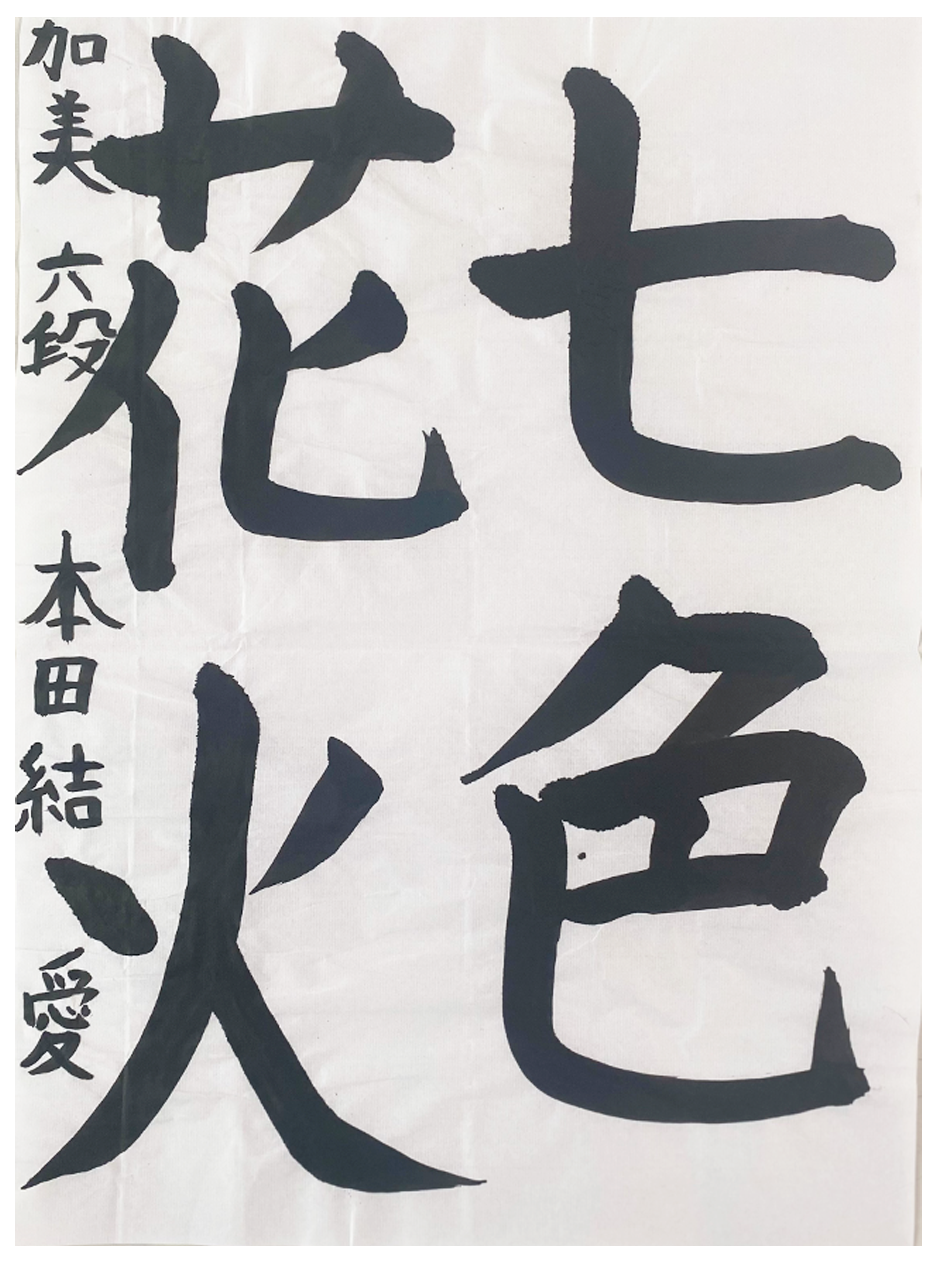 七色
花火
加美 六段 本田結愛